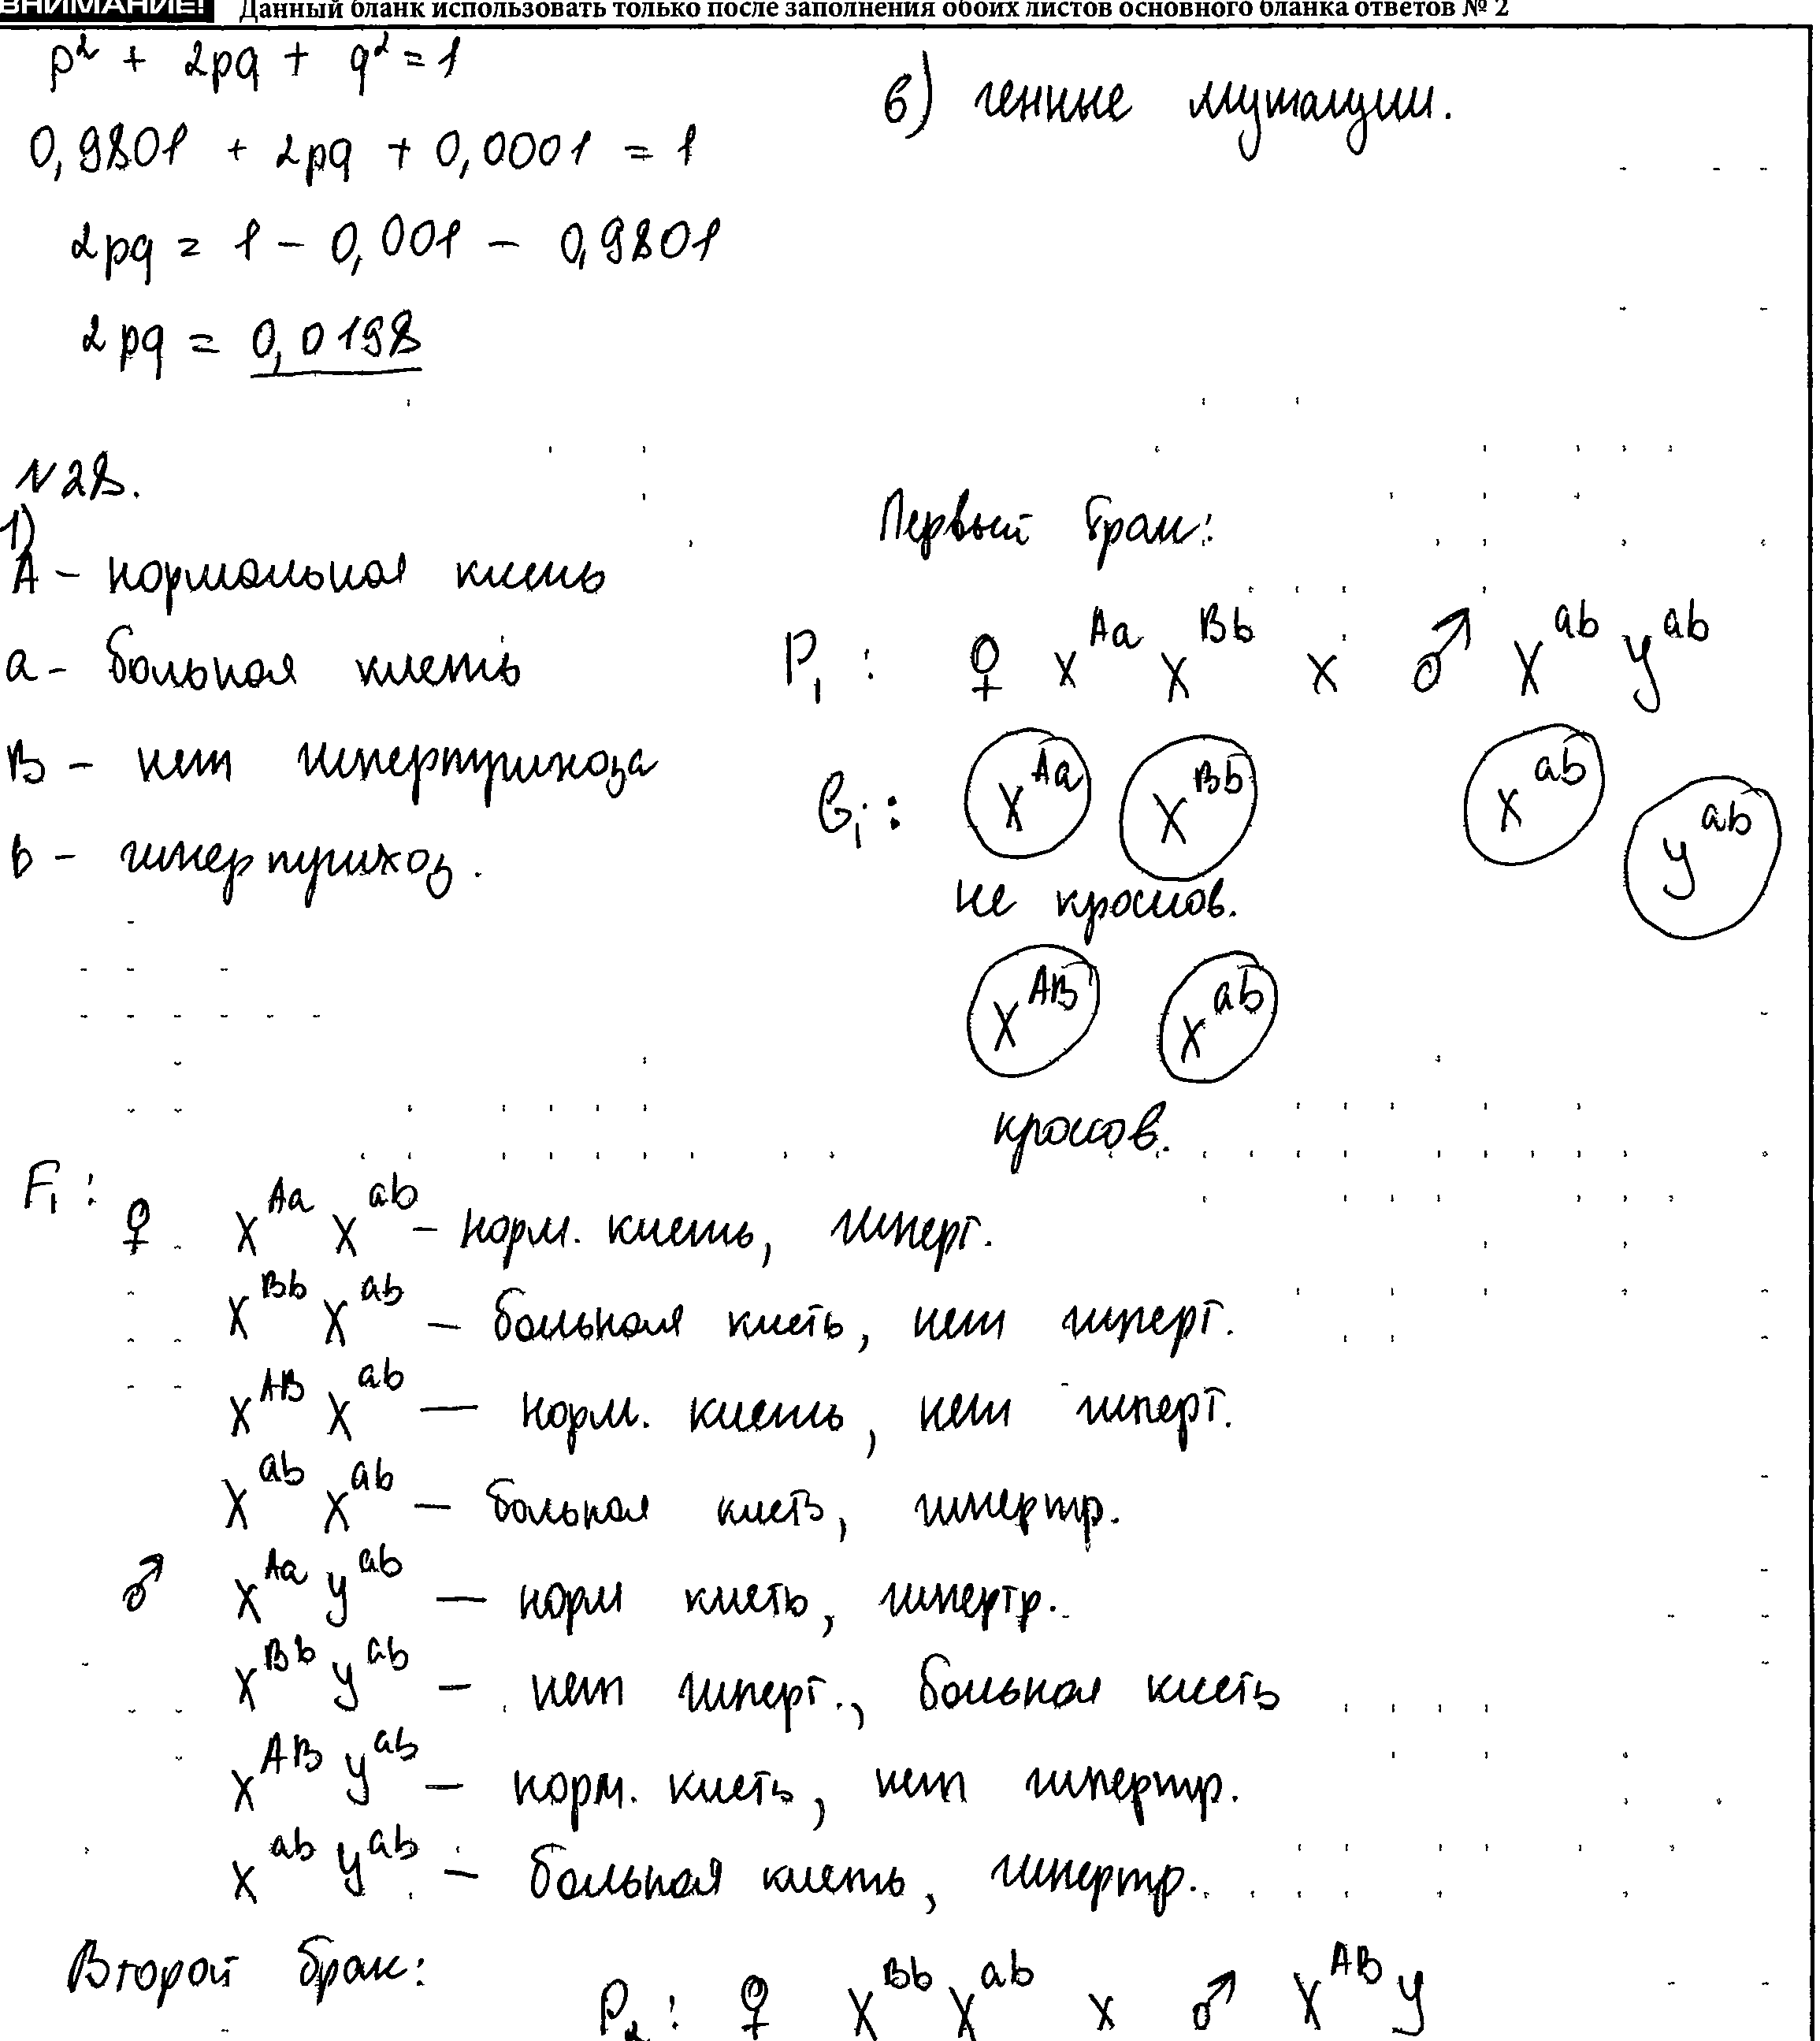 ВНИМАНИЕ! Данный бланк использовать только после заполнения обоих листов основного бланка ответов № 2
p² + 2pq + q² = 1
0,9801 + 2pq + 0,0001 = 1
2pq = 1 – 0,001 – 0,9801
2pq = 0,0198
6) генные мутации.
N28.
1)
A – нормальная кисть
a – больная кисть
B – нет гипертрихоза
b – гипертрихоз.
Первый брак:
P₁ : ♀ X^Aa X^Bb x ♂ X^ab Y^ab
G₁ : X^Aa X^Bb X^ab Y^ab
не кроссов.
X^AB X^ab
кроссов.
F₁ :
♀ X^Aa X^ab – норм. кисть, гиперт.
X^Bb X^ab – больная кисть, нет гиперт.
X^AB X^ab — норм. кисть, нет гиперт.
X^ab X^ab – больная кисть, гипертр.
♂ X^Aa Y^ab — норм кисть, гипертр.
X^Bb Y^ab – нет гиперт., больная кисть
X^AB Y^ab – норм. кисть, нет гипертр.
X^ab Y^ab – больная кисть, гипертр.
Второй брак:
P₂ : ♀ X^Bb X^ab x ♂ X^AB Y